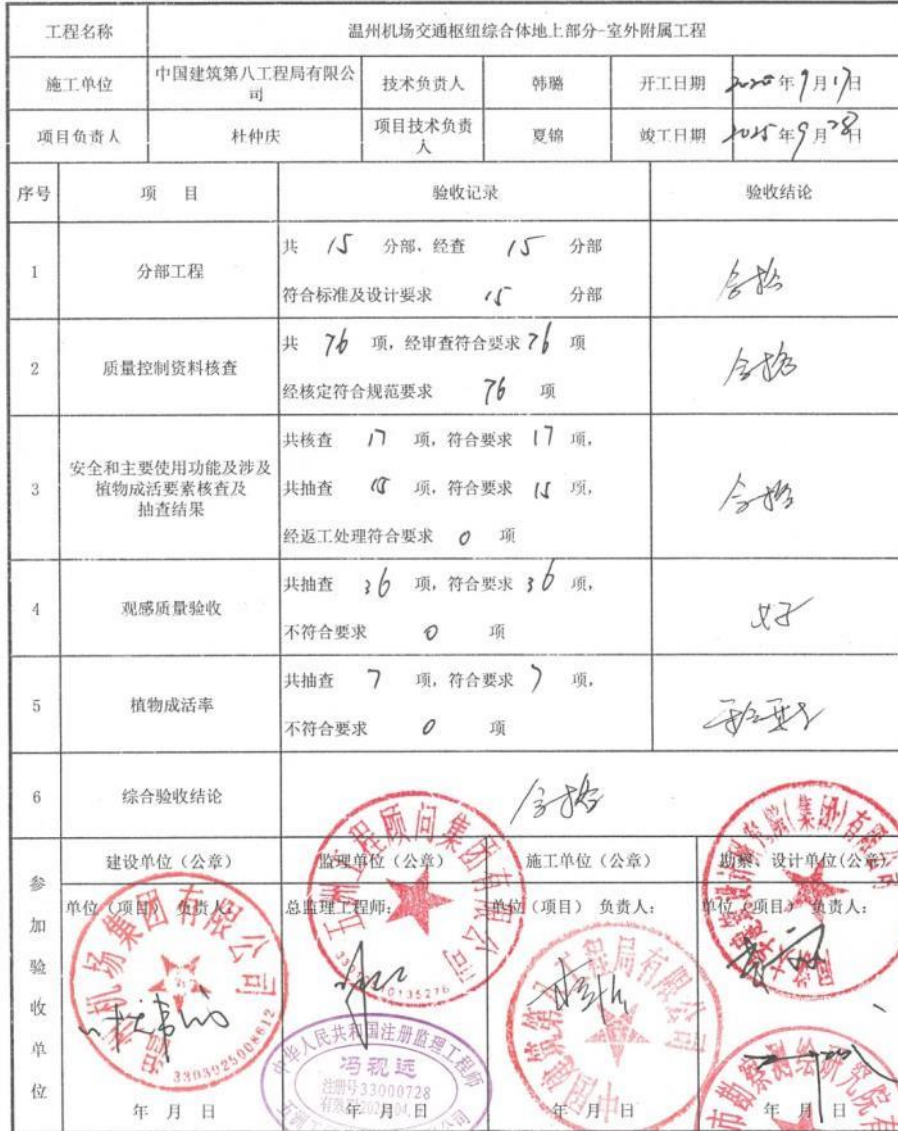 工程名称 温州机场交通枢纽综合体地上部分-室外附属工程
施工单位 中国建筑第八工程局有限公司 技术负责人 韩璐 开工日期 2020年9月17日
项目负责人 杜仲庆 项目技术负责人 夏锦 竣工日期 2025年9月28日
序号 项 目 验收记录 验收结论
1 分部工程 共 15 分部，经查 15 分部
符合标准及设计要求 15 分部
合格
2 质量控制资料核查 共 76 项，经审查符合要求 76 项
经核定符合规范要求 76 项
合格
3 安全和主要使用功能及涉及
植物成活要素核查及
抽查结果
共核查 17 项，符合要求 17 项，
共抽查 15 项，符合要求 15 项，
经返工处理符合要求 0 项
合格
4 观感质量验收 共抽查 36 项，符合要求 36 项，
不符合要求 0 项
好
5 植物成活率 共抽查 7 项，符合要求 7 项，
不符合要求 0 项
6 综合验收结论 合格
参加验收单位
建设单位（公章） 监理单位（公章） 施工单位（公章） 勘察、设计单位(公章)
单位（项目）负责人： 总监理工程师： 单位（项目） 负责人： 单位（项目）负责人：
机场集团有限公司
3303025008612
五洲工程顾问集团有限公司
中华人民共和国注册监理工程师
冯砚远
注册号33000728
中国建筑第八工程局有限公司
市勘察测绘研究院有
年 月 日 年 月 日 年 月 日 年 月 日